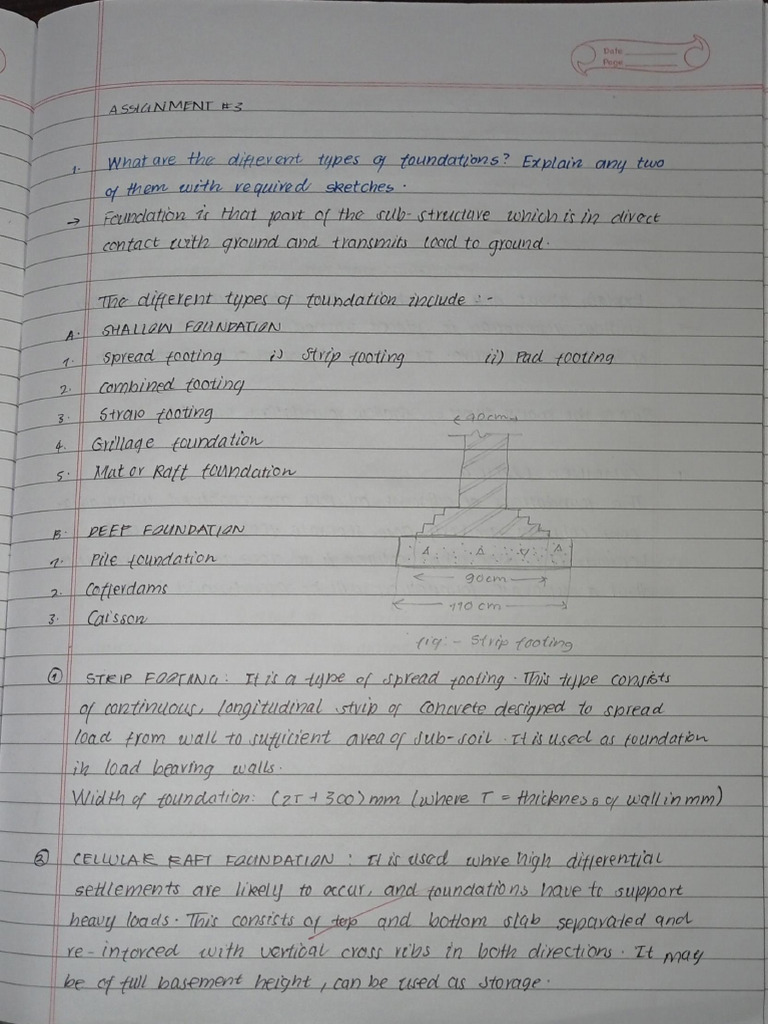 Date
Page
ASSIGNMENT #3
1. What are the different types of foundations? Explain any two
of them with required sketches.
→ Foundation is that part of the sub-structure which is in direct
contact with ground and transmits load to ground.
The different types of foundation include :-
A. SHALLOW FOUNDATION
1. Spread footing i) Strip footing ii) Pad footing
2. Combined footing
3. Strap footing
4. Grillage foundation
5. Mat or Raft foundation
B. DEEP FOUNDATION
1. Pile foundation
2. Cofferdams
3. Caisson
90cm
110 cm
fig:- Strip footing
① STRIP FOOTING: It is a type of spread footing. This type consists
of continuous, longitudinal strip of concrete designed to spread
load from wall to sufficient area of sub-soil. It is used as foundation
in load bearing walls.
Width of foundation: (2T + 300) mm (where T = thickness of wall in mm)
② CELLULAR RAFT FOUNDATION : It is used whre high differential
settlements are likely to occur, and foundations have to support
heavy loads. This consists of top and bottom slab separated and
re-inforced with vertical cross ribs in both directions. It may
be of full basement height, can be used as storage.